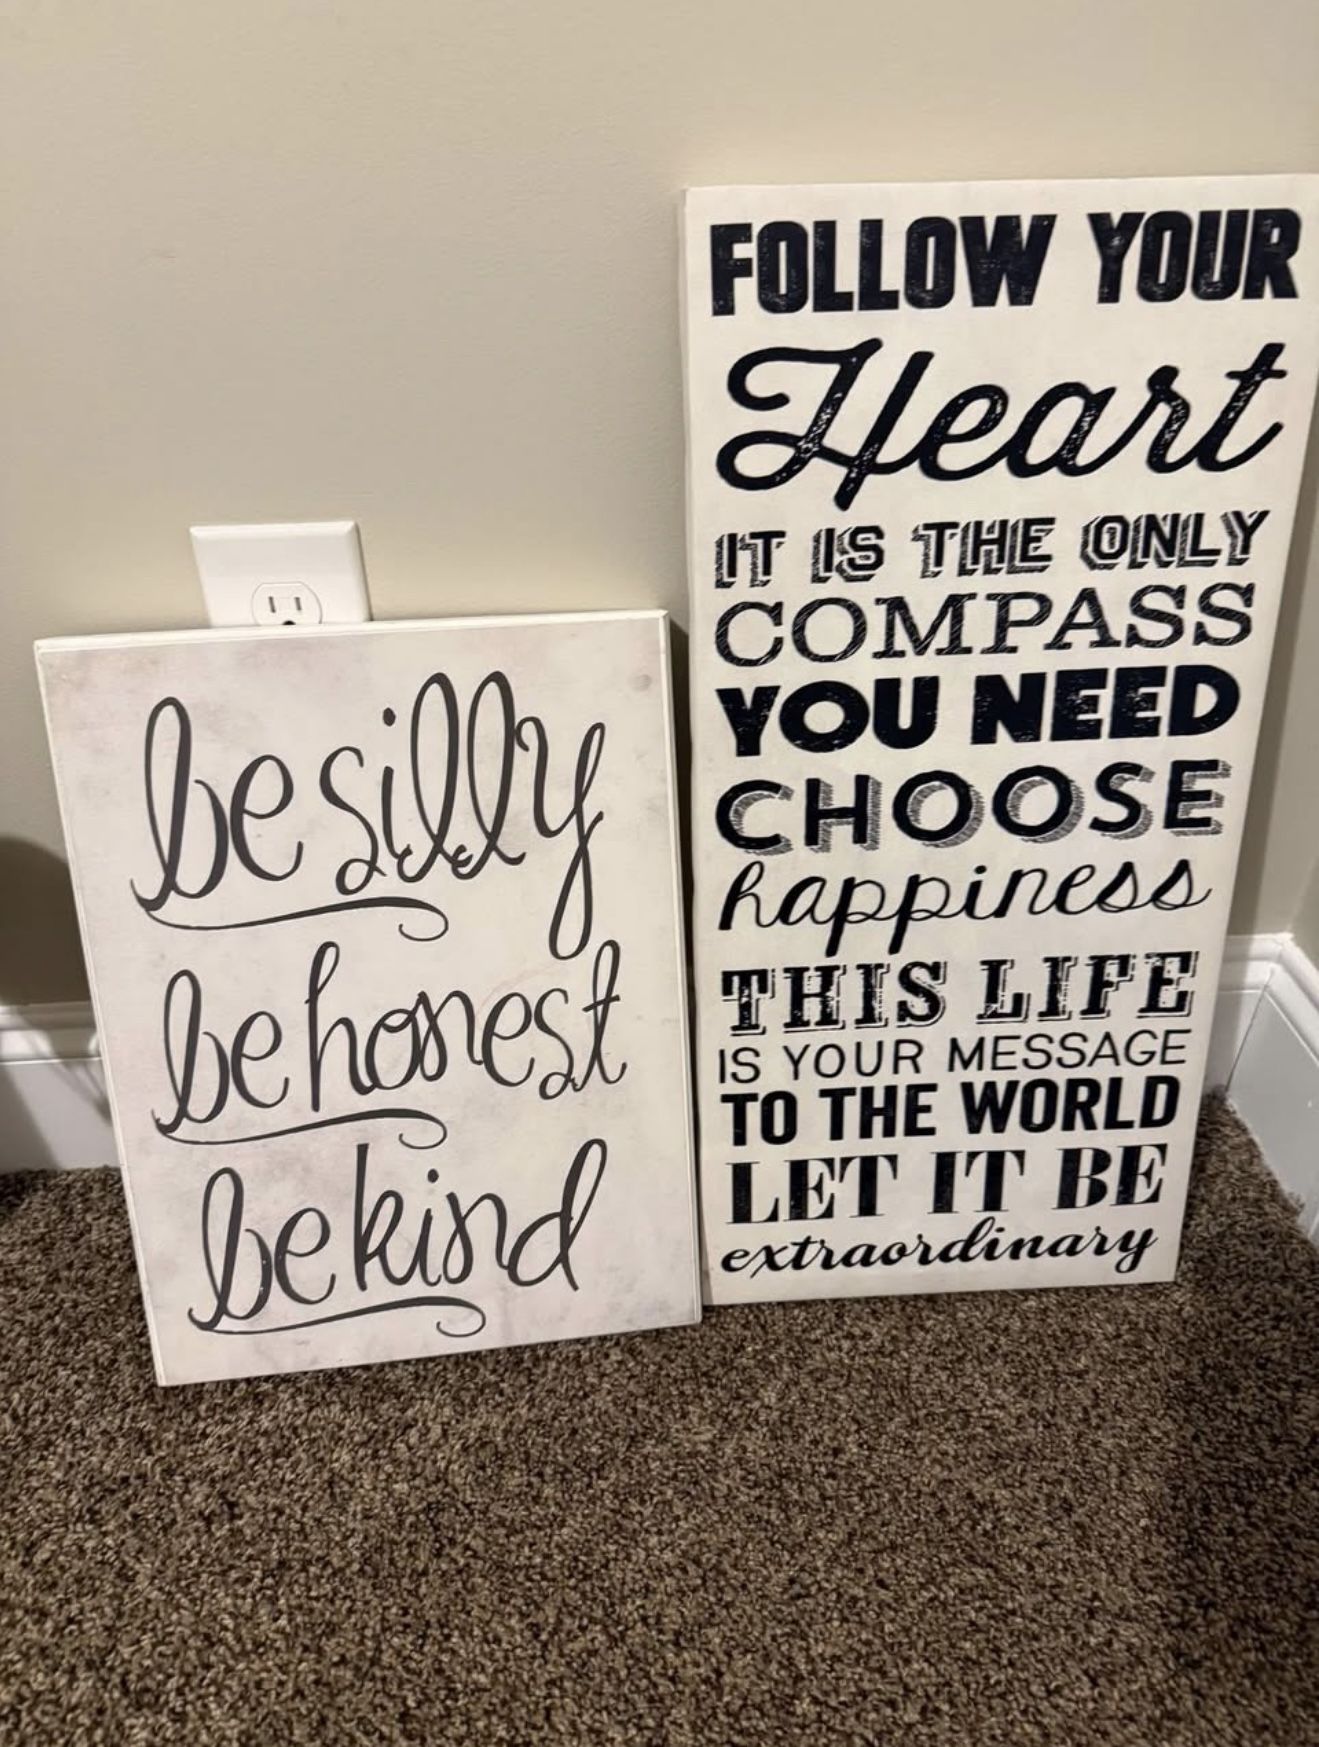 be silly
be honest
be kind
FOLLOW YOUR
Heart
IT IS THE ONLY
COMPASS
YOU NEED
CHOOSE
happiness
THIS LIFE
IS YOUR MESSAGE
TO THE WORLD
LET IT BE
extraordinary